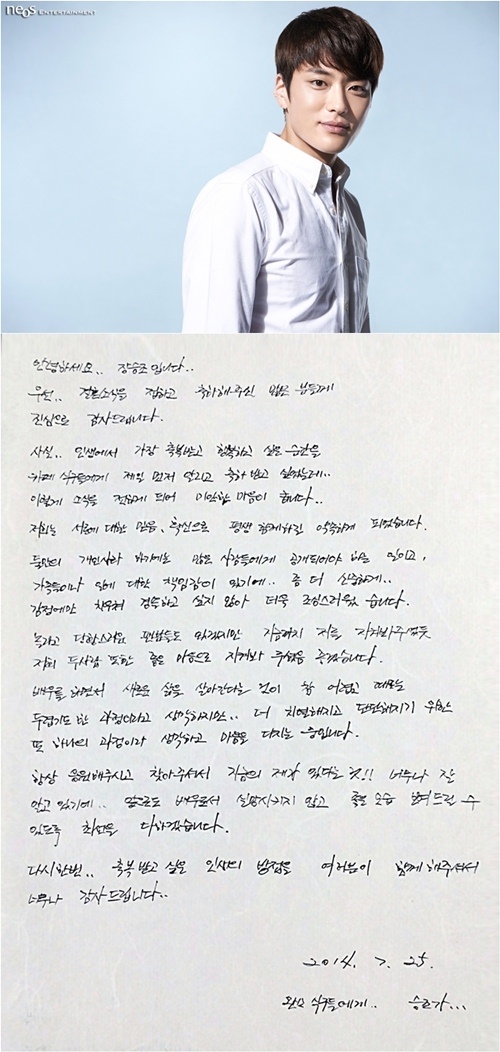 neos ENTERTAINMENT
안녕하세요.. 장승조입니다..
우선.. 결혼소식을 접하고 축하해주신 많은 분들께
진심으로 감사드립니다.
사실.. 인생에서 가장 축복받고 행복하고 싶은 순간을
카페 식구들에게 제일 먼저 알리고 축하 받고 싶었는데..
이렇게 소식을 전하게 되어 미안한 마음이 큽니다..
저희는 서로에 대한 믿음, 확신으로 평생 함께하길 약속하게 되었습니다.
둘만의 개인사라 하기에는 많은 사람들에게 공개되어야 하는 일이고,
가족들이나 일에 대한 책임감이 있기에.. 좀 더 신중하게..
감정에만 치우쳐 경솔하고 싶지 않아 더욱 조심스러웠습니다.
놀라고 당황스러운 분들도 있겠지만 지금까지 저를 지켜봐주셨듯
저희 두사람 또한 좋은 마음으로 지켜봐 주셨음 좋겠습니다.
배우를 하면서 새로운 삶을 살아간다는 것이 참 어렵고 때로는
두렵기도 한 과정이라고 생각하지만.. 더 치열해지고 단단해지기 위한
또 하나의 과정이라 생각하고 마음을 다지는 중입니다.
항상 응원해주시고 찾아주셔서 지금의 제가 있다는 것!! 너무나 잘
알고 있기에.. 앞으로도 배우로서 실망시키지 않고 좋은 모습 보여드릴 수
있도록 최선을 다하겠습니다.
다시한번.. 축복 받고 싶은 인생의 방점을 여러분이 함께해주셔서
너무나 감사드립니다..
2014. 7. 25.
완소 식구들에게.. 승조가...